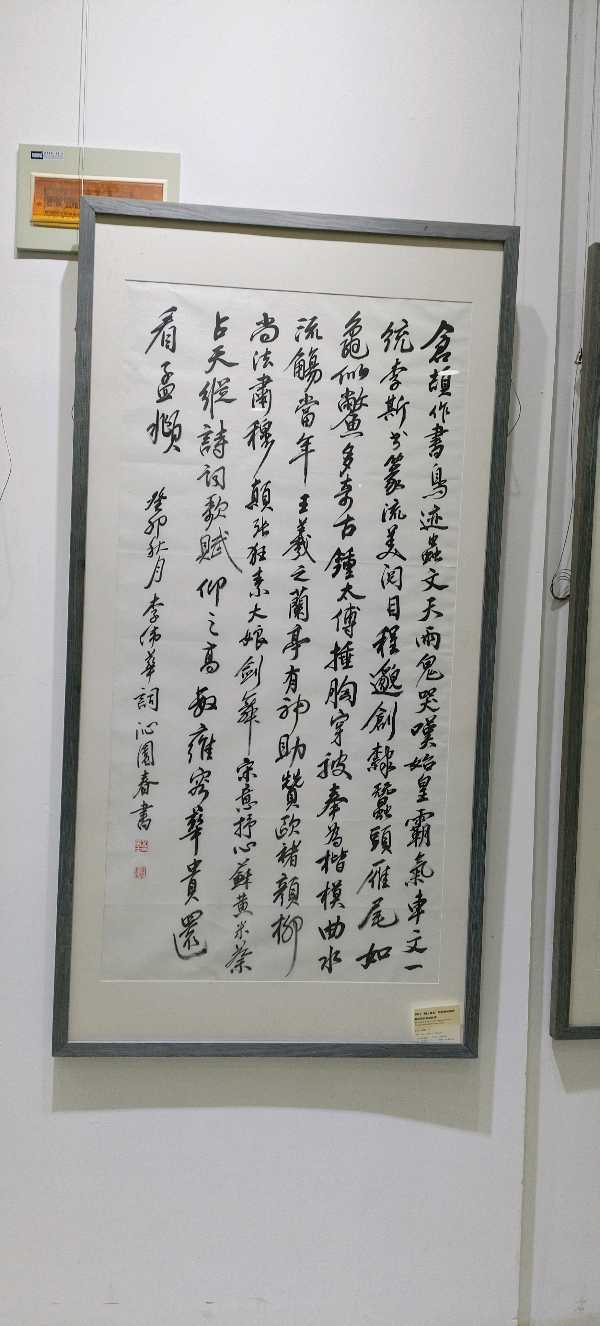 倉頡作書鳥迹蟲文天雨鬼哭嘆始皇霸氣車文一
統李斯書篆流美闷目程邈創隸蠶頭雁尾如
龜似鱉多奇古鍾太傅捶胸穿被奉為楷模曲水
流觴當年王羲之蘭亭有神助贊歐褚顏柳
尚法肅穆顛張狂素大娘劍舞宋意抒心蘇黃米蔡
占天縱詩詞歌賦仰之高敬雍容華貴還
看孟頫
癸卯秋月李伟華詞沁園春書